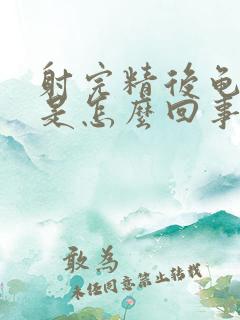 射完精後龟
是怎麽回事
敢為
未任同意禁止转载